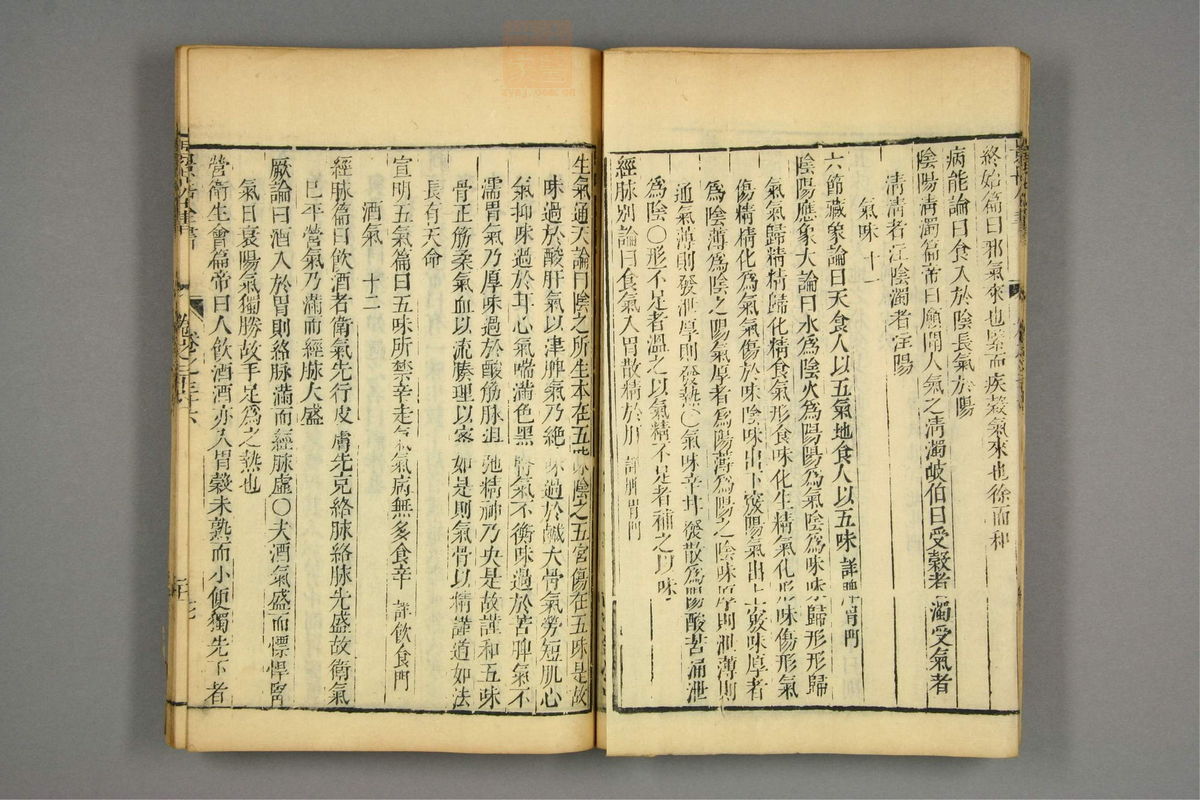 終始篇曰邪氣來也緊而疾穀氣來也徐而和
病能論曰食入於陰長氣於陽
陰陽清濁篇帝曰願聞人氣之清濁岐伯曰受穀者濁受氣者
清清者注陰濁者注陽
氣味 十一
六節藏象論曰天食人以五氣地食人以五味 詳脾胃門
陰陽應象大論曰水為陰火為陽陽為氣陰為味味歸形形歸
氣氣歸精精歸化精食氣形食味化生精氣化形味傷形氣
傷精精化為氣氣傷於味陰味出下竅陽氣出上竅味厚者
為陰薄為陰之陽氣厚者為陽薄為陽之陰味厚則泄薄則
通氣薄則發泄厚則發熱○氣味辛甘發散為陽酸苦涌泄
為陰○形不足者溫之以氣精不足者補之以味
經脈別論曰食氣入胃散精於肝 詳脾胃門
生氣通天論曰陰之所生本在五味陰之五宮傷在五味是故
味過於酸肝氣以津脾氣乃絕味過於鹹大骨氣勞短肌心
氣抑味過於甘心氣喘滿色黑腎氣不衡味過於苦脾氣不
濡胃氣乃厚味過於酸筋脉沮弛精神乃央是故謹和五味
骨正筋柔氣血以流腠理以密如是則氣骨以精謹道如法
長有天命
宣明五氣篇曰五味所禁辛走氣氣病無多食辛 詳飲食門
酒氣 十二
經脉篇曰飲酒者衛氣先行皮膚先充絡脉絡脉先盛故衛氣
已平營氣乃滿而經脉大盛
厥論曰酒入於胃則絡脉滿而經脉虛○夫酒氣盛而慓悍腎
氣日衰陽氣獨勝故手足為之熱也
營衛生會篇帝曰人飲酒酒亦入胃穀未熟而小便獨先下者
卷之三十六